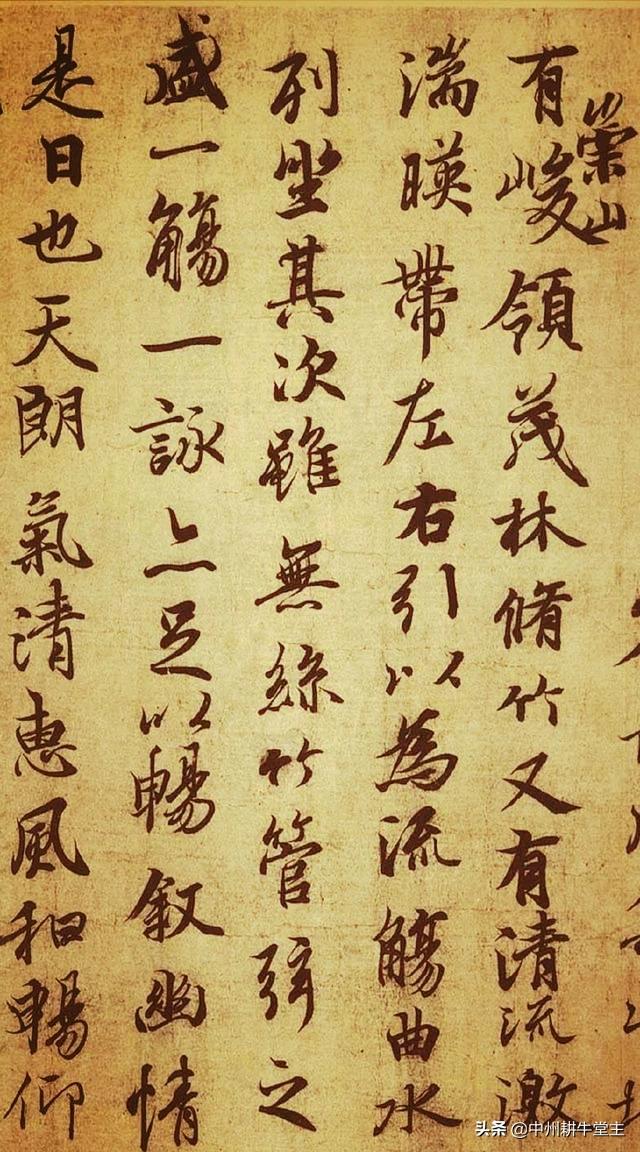 有崇山峻領茂林脩竹又有清流激
湍暎帶左右引以為流觴曲水
列坐其次雖無絲竹管弦之
盛一觴一詠亦足以暢敘幽情
是日也天朗氣清惠風和暢仰
头条 @中州耕牛堂主